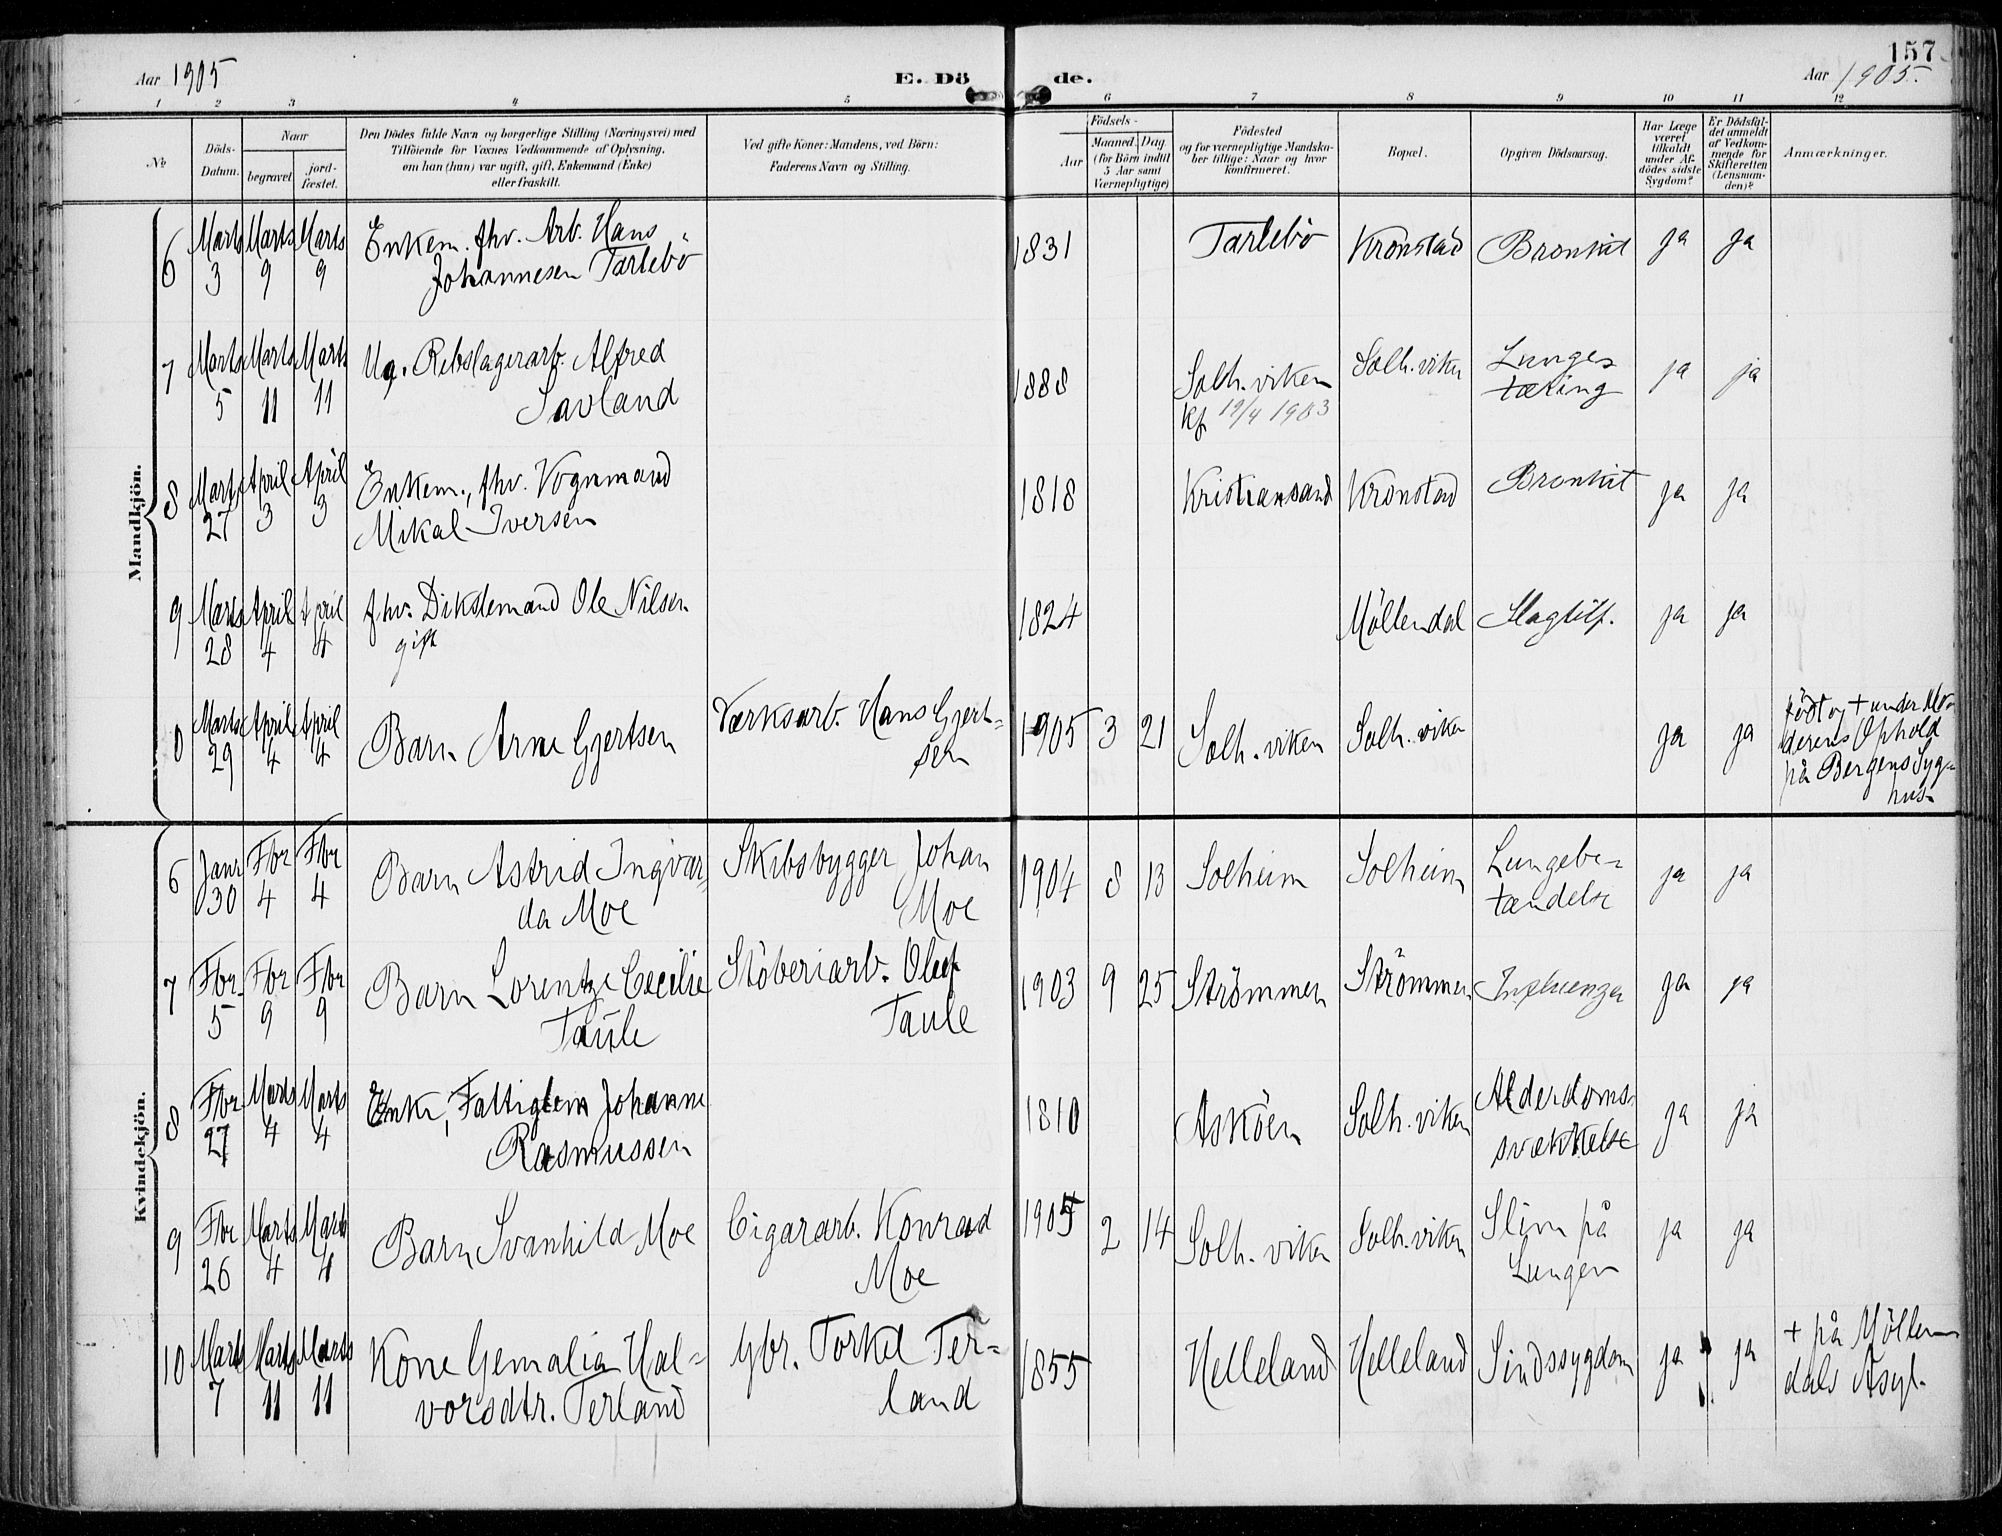 157
Aar 1905
E. Dö
de.
Aar 1905.
1 2 3 4 5 6 7 8 9 10 11 12
No
Döds-
Datum.
Naar
begravet
jord-
fæstet.
Den Dödes fulde Navn og borgerlige Stilling (Næringsvei) med
Tilföiende for Voxnes Vedkommende af Oplysning,
om han (hun) var ugift, gift, Enkemand (Enke)
eller fraskilt.
Ved gifte Koner: Mandens, ved Börn:
Faderens Navn og Stilling.
Födsels-
Aar
Maaned. Dag.
(for Börn indtil
5 Aar samt
Værnepligtige)
Födested
og for værnepligtige Mandska-
ber tillige: Naar og hvor
konfirmeret.
Bopæl.
Opgiven Dödsaarsag.
Har Læge
været
tilkaldt
under Af-
dödes sidste
Sygdom?
Er Dödsfal-
det anmeldt
af Vedkom-
mende for
Skifteretten
(Lensman-
den)?
Anmærkninger.
Mandkjön.
6 Marts Marts Marts Enkem. fhv. Arb. Hans 1831 Tarlebö Kronstad Bronkit ja ja
3 9 9 Johannesen Tarlebö
7 Marts Marts Marts Ug. Rebslagerarb. Alfred 1888 Solh. viken Solh. viken Lunge= ja ja
5 11 11 Savland kf. 19/4 1903 tæring
8 Marts April April Enkem., fhv. Vognmand 1818 Kristiansand Kronstad Bronkit ja ja
27 3 3 Mikal Iversen
9 Marts April April fhv. Dikslemand Ole Nilsen 1824 Möllendal Slagtilf. ja ja
28 4 4 gift
0 Marts April April Barn Arne Gjertsen Værksarb. Hans Gjert= 1905 3 21 Solh. viken Solh. viken ja ja
29 4 4 sen
födt og + under Mo-
derens Ophold
på Bergens Syg=
hus.
Kvindekjön.
6 Janr Fbr Fbr Barn Astrid Ingvar= Skibsbygger Johan 1904 8 13 Solheim Solheim Lungebe= ja ja
30 4 4 da Moe Moe tændelse
7 Fbr. Fbr Fbr Barn Lorentze Cecilie Stöberiarb. Oluf 1903 9 25 Strömmen Strömmen Influenza ja ja
5 9 9 Taule Taule
8 Fbr Marts Marts Enke, Fattiglem Johanne 1810 Asköen Solh. viken Alderdoms= ja ja
27 4 4 Rasmussen svækkelse
9 Fbr Marts Marts Barn Svanhild Moe Cigararb. Konrad 1905 2 14 Solh. viken Solh. viken Slim på ja ja
26 4 4 Moe Lungen
10 Marts Marts Marts Kone Gemalia Hal= Gbr. Torkel Ter= 1855 Helleland Helleland Sindssygdom ja ja + på Möllen
7 11 11 vorsdtr. Terland land dals Asyl.